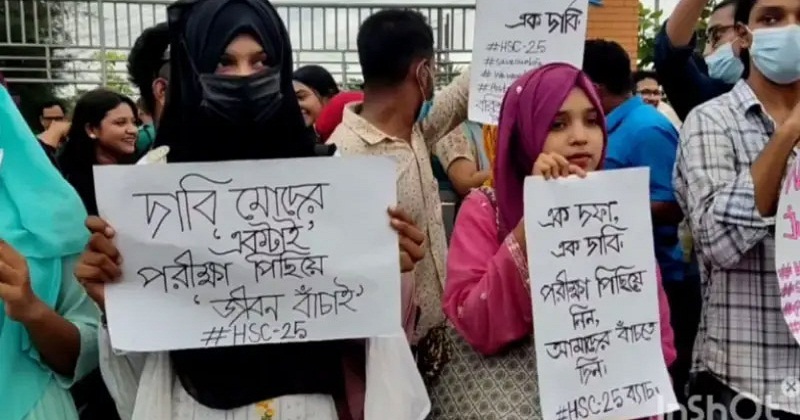 দাবি মোদের
'একটাই'
পরীক্ষা পিছিয়ে
'জীবন বাঁচাই'
#HSC-25
এক দাবি
#HSC-25
এক দফা,
এক দাবি
পরীক্ষা পিছিয়ে
দিন,
আমাদের বাঁচতে
দিন।
#HSC-25 ব্যাচ।
InShot